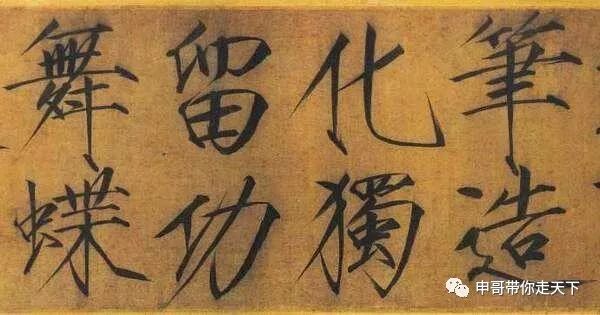 筆造
化獨
留功
舞蝶
申哥带你走天下